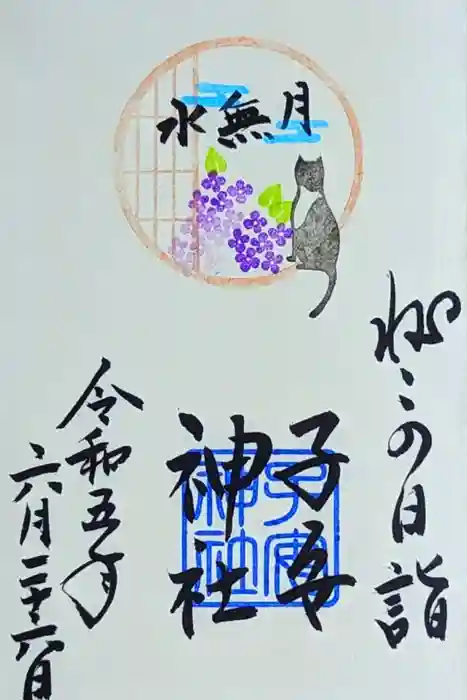 水無月
ねこの日詣
子安
神社
令和五年
六月二十六日
子安
神社